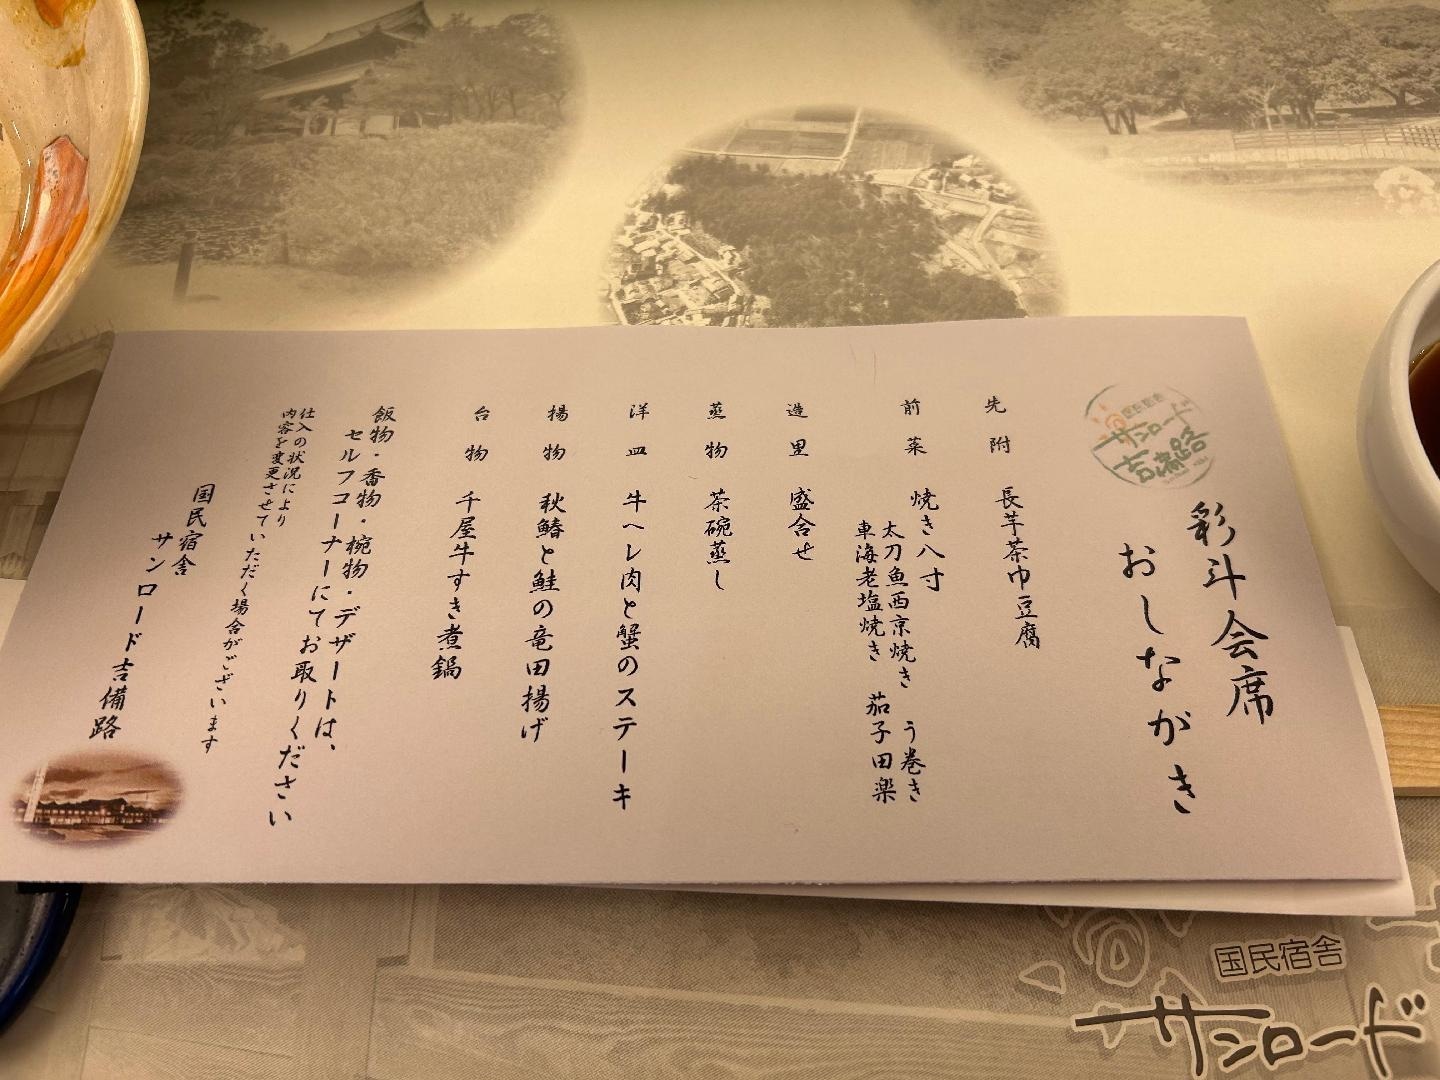 国民宿舎
サンロード
吉備路
彩斗会席
おしながき
先附 長芋茶巾豆腐
前菜 焼き八寸
太刀魚西京焼き う巻き
車海老塩焼き 茄子田楽
造里 盛合せ
蒸物 茶碗蒸し
洋皿 牛ヘレ肉と蟹のステーキ
揚物 秋鰆と鮭の竜田揚げ
台物 千屋牛すき煮鍋
飯物・香物・椀物・デザートは、
セルフコーナーにてお取りください
仕入の状況により
内容を変更させていただく場合がございます
国民宿舎
サンロード吉備路
国民宿舎
サンロード